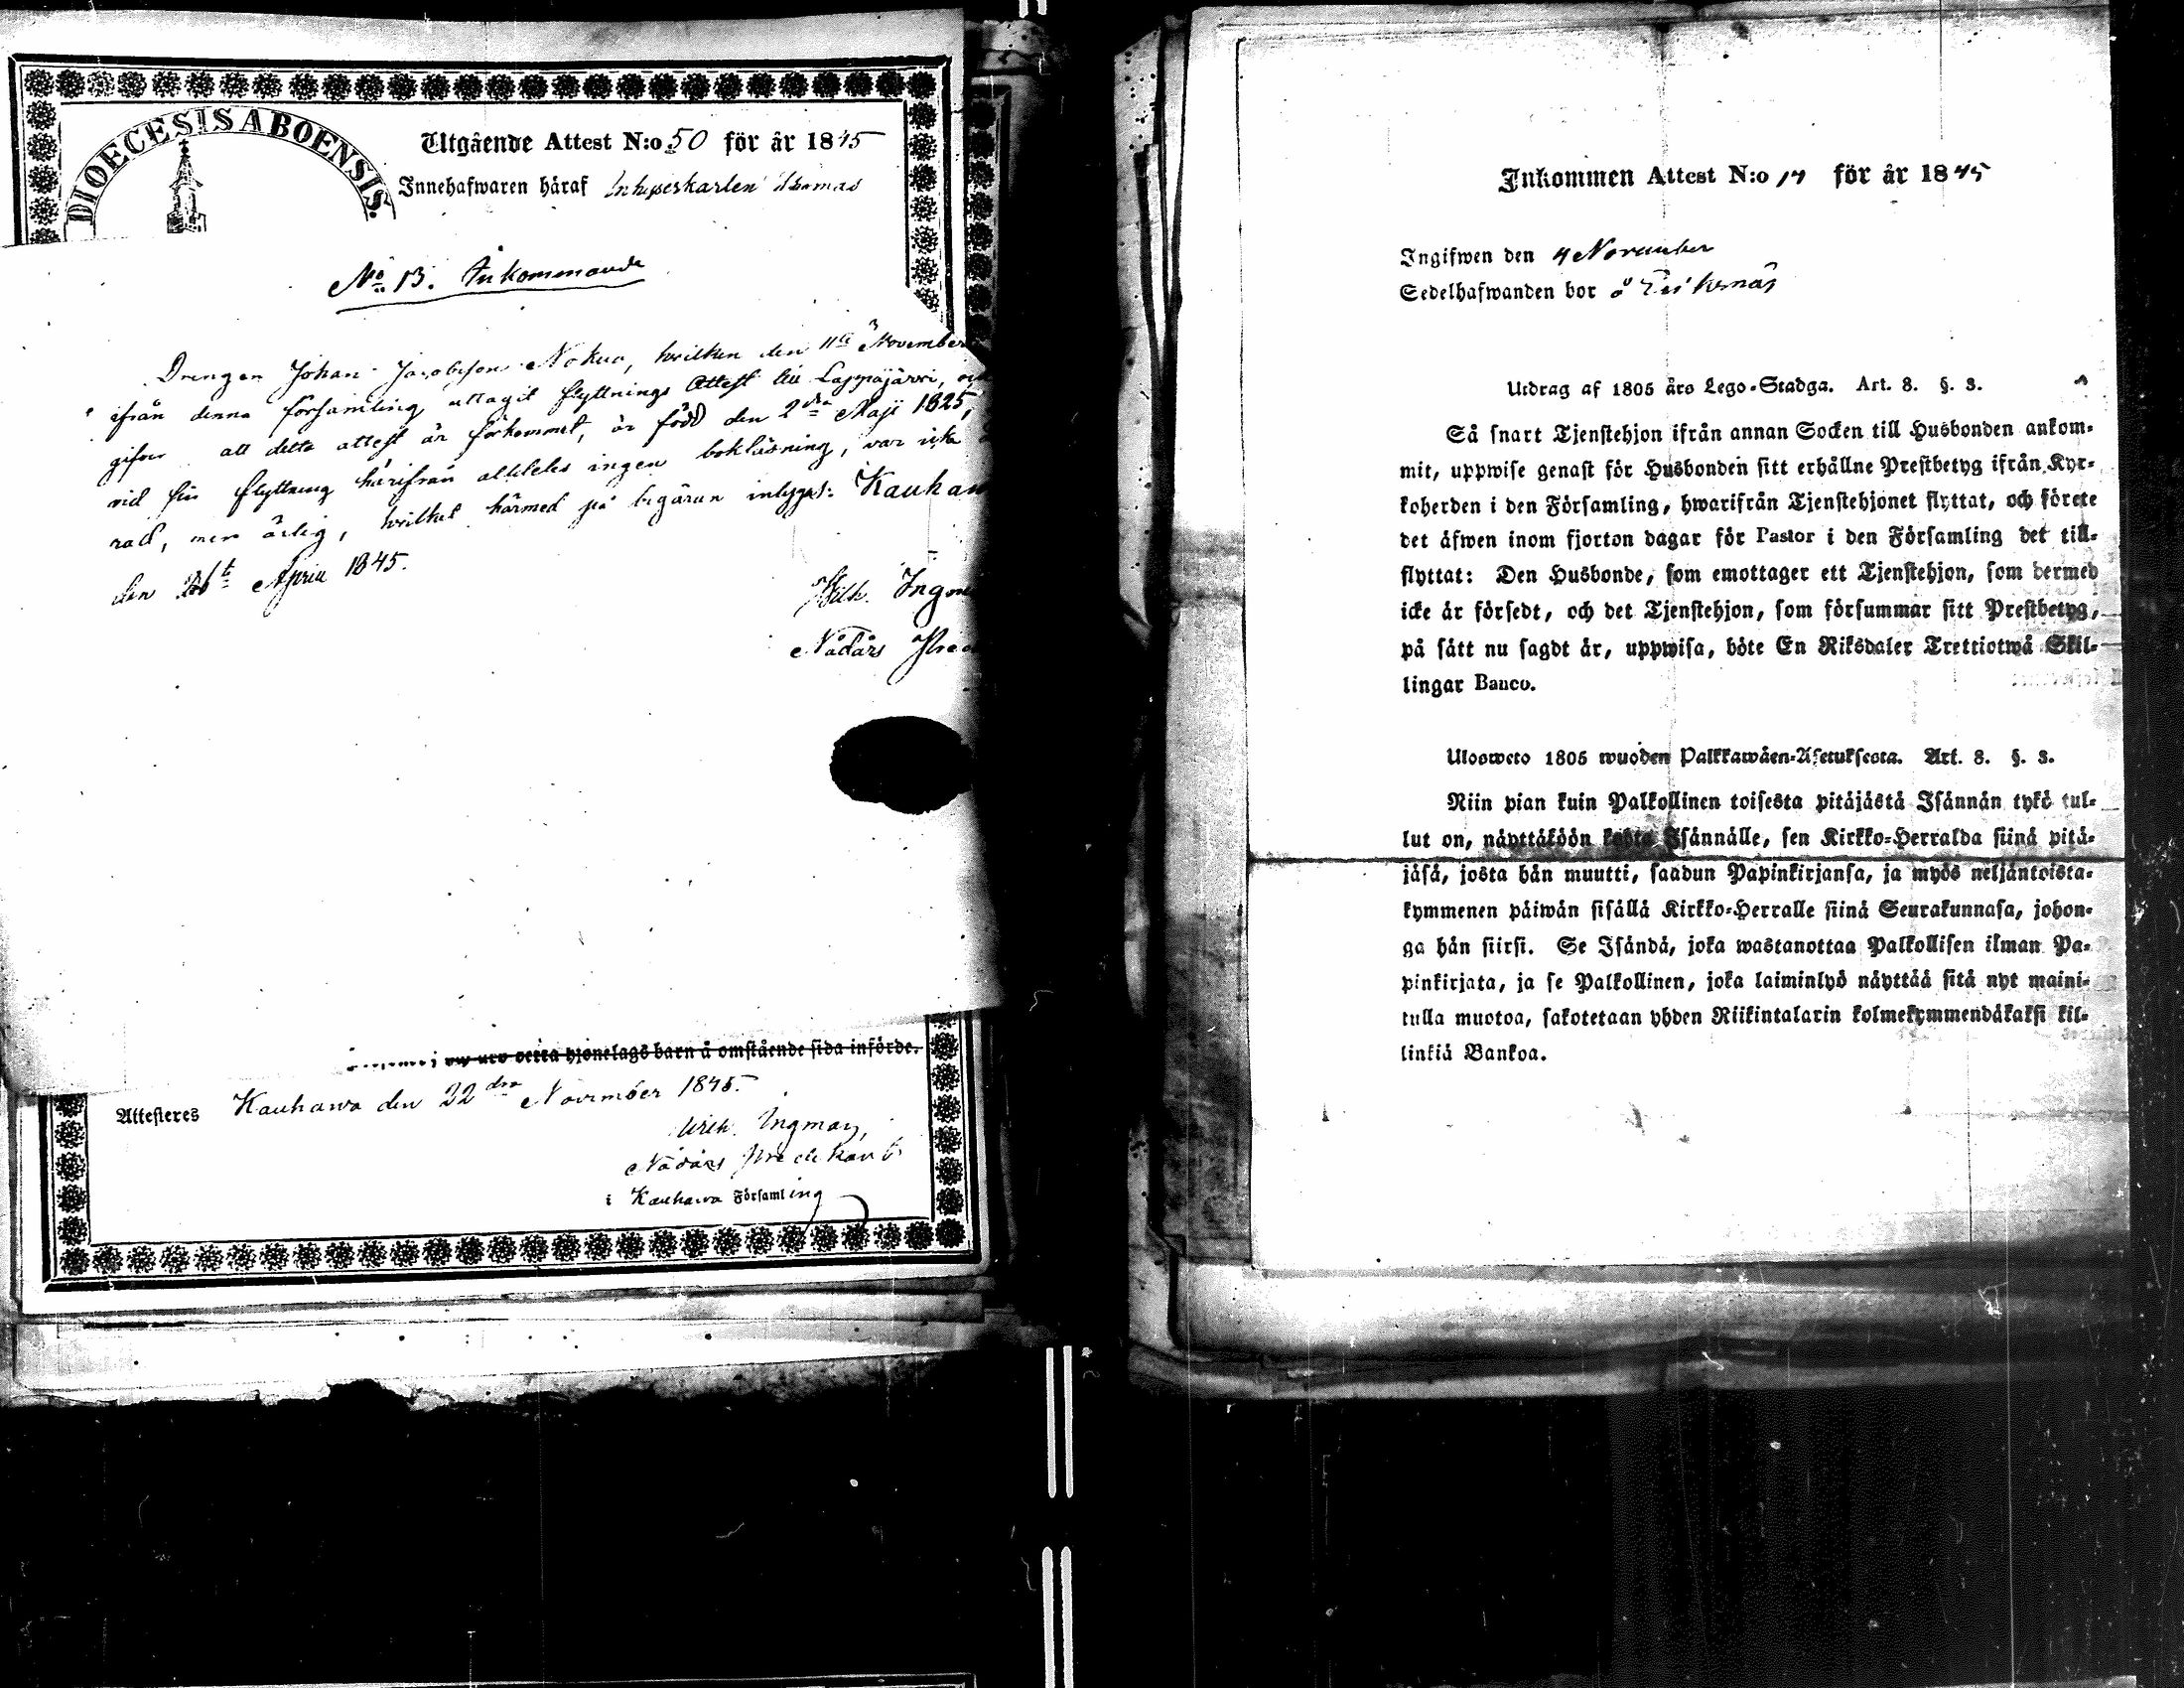 DIOECESIS ABOENSIS.
Utgående Attest N:o 50 för år 1845
Innehafwaren håraf Inhyseskarlen Thomas
No 13. Inkommande
Drengen Johan Jacobsson Nokua, hvilken den 11te November
ifrån denna församling uttagit flyttnings Attest till Lappajärvi,
gifvit att detta attest är förkommet, är född den 2dra Maji 1825,
vid sin flyttning härifrån alldeles ingen bokläsning, var icke
rad, men ärlig, hvilket härmed på begäran intygas: Kauhawa
den 26te April 1845.
Wilh. Ingman
Nådårs
hjonelags barn å omstående sida införde.
Attesteres Kauhawa den 22dra November 1845.
Wilh. Ingman,
Nådårs Predikant
i Kauhawa Församling
Inkommen Attest N:o 14 för år 1845
Ingifwen den 4 November
Sedelhafwanden bor å
Utdrag af 1805 års Lego-Stadga. Art. 8. §. 3.
Så snart Tjenstehjon ifrån annan Socken till Husbonden ankom-
mit, uppwise genast för Husbonden sitt erhållne Prestbetyg ifrån Kyr-
koherden i den Församling, hwarifrån Tjenstehjonet flyttat, och förete
det åfwen inom fjorton dagar för Pastor i den Församling det till-
flyttat: Den Husbonde, som emottager ett Tjenstehjon, som dermed
icke år försedt, och det Tjenstehjon, som försummar sitt Prestbetyg,
på sått nu sagdt år, uppwisa, böte En Riksdaler Trettiotwå Skil-
lingar Banco.
Ulosweto 1805 wuoden Palkkawåen-Asetuksesta. Art. 8. §. 3.
Niin pian kuin Palkollinen toisesta pitåjåstå Isånnån tykö tul-
lut on, nåyttåköön kohta Isånnålle, sen Kirkko-Herralda siinå pitå-
jåså, josta hån muutti, saadun Papinkirjansa, ja myös neljåntoista-
kymmenen påiwån sisållå Kirkko-Herralle siinå Seurakunnasa, johon-
ga hån siirsi. Se Isåndå, joka wastanottaa Palkollisen ilman Pa-
pinkirjata, ja se Palkollinen, joka laiminlyö nåyttåå sitå nyt maini-
tulla muotoa, sakotetaan yhden Riikintalarin kolmekymmendåkaksi kil-
linkiå Bankoa.